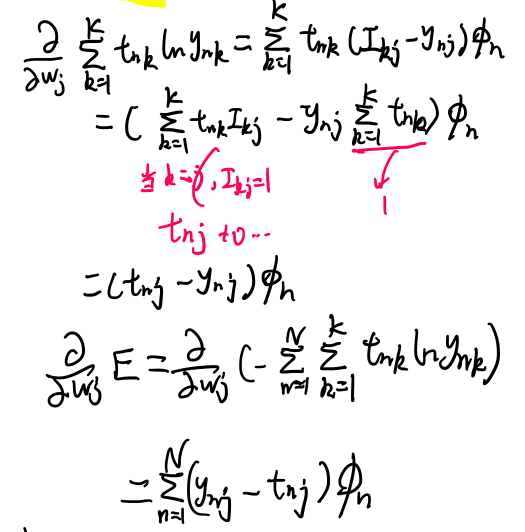 ∂/∂w_j Σ_{k=1}^{K} t_{nk} ln y_{nk} = Σ_{k=1}^{K} t_{nk} (I_{kj} - y_{nj}) φ_n
= ( Σ_{k=1}^{K} t_{nk} I_{kj} - y_{nj} Σ_{k=1}^{K} t_{nk} ) φ_n
当 k=j, I_{kj}=1
1
t_{nj} + 0 ...
= (t_{nj} - y_{nj}) φ_n
∂/∂w_j E = ∂/∂w_j (- Σ_{n=1}^{N} Σ_{k=1}^{K} t_{nk} ln y_{nk})
= Σ_{n=1}^{N} (y_{nj} - t_{nj}) φ_n